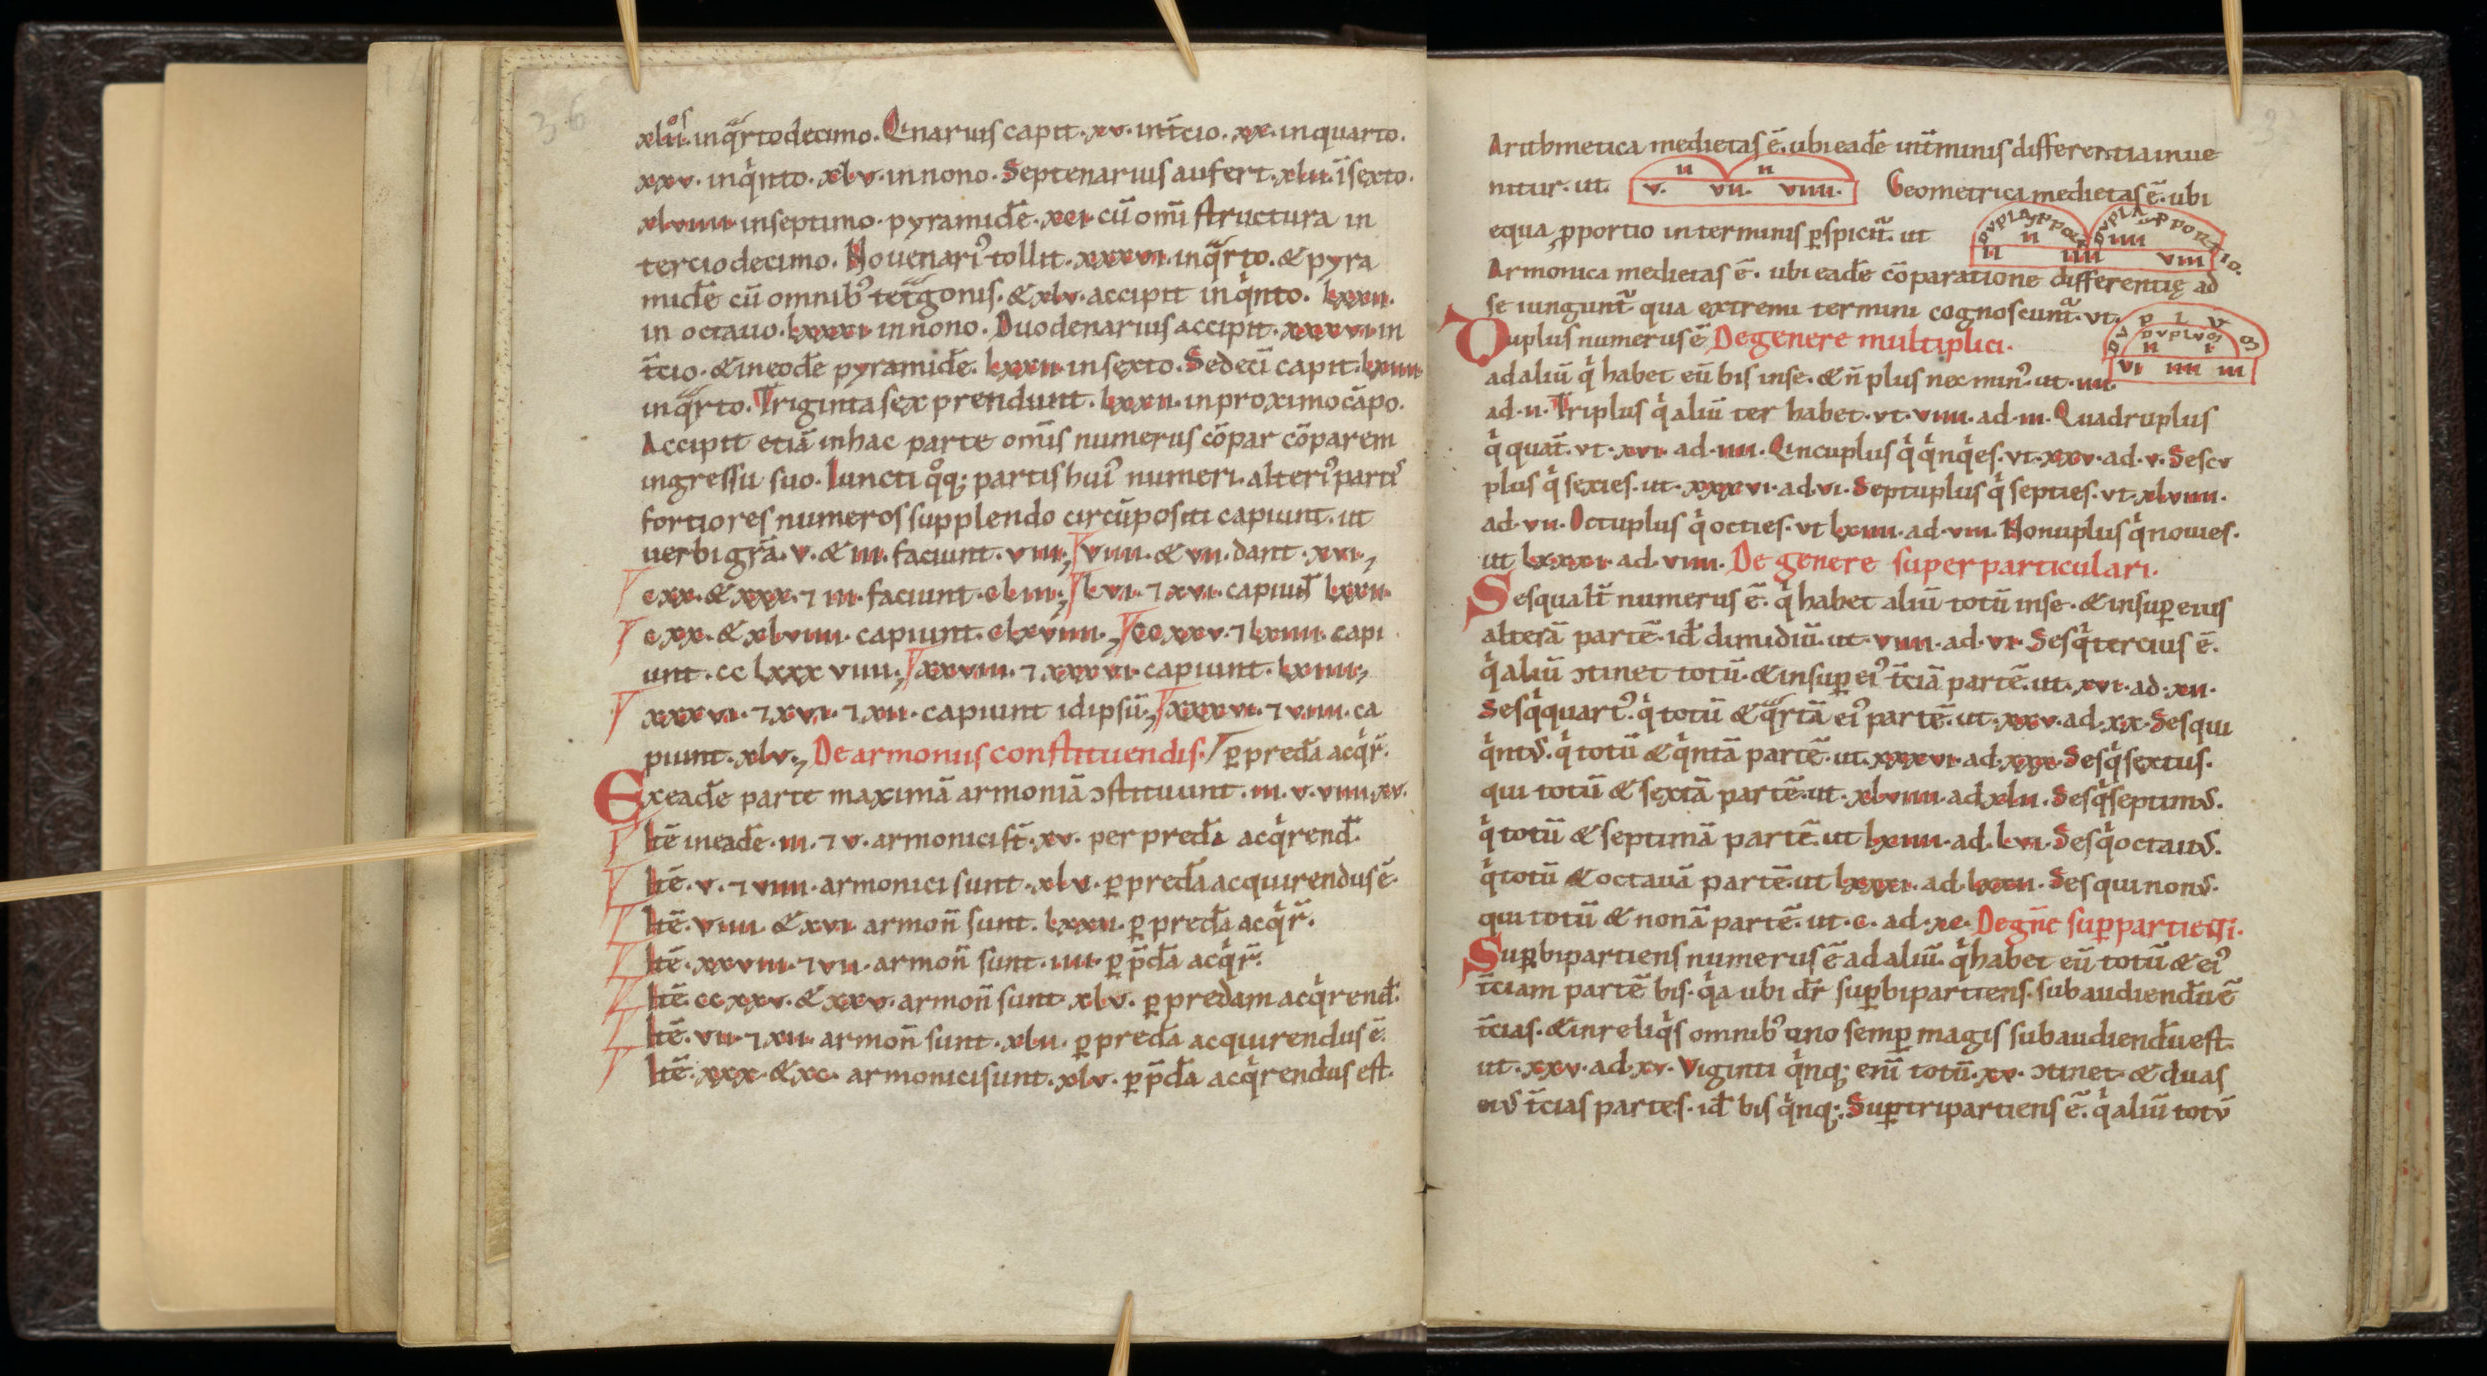 36
xlıı. inq̃rtodecimo. Qinarius capit .xv. int̃cio .xx. inquarto.
xxv. inq̍nto .xlv. innono. Septenarius aufert .xlıı. ı̃sexto.
xlvıııı. inseptimo. pyramidẽ .xcı. cũ omı̃ structura in
terciodecimo. Nouenari᷒ tollit .xxxvı. inq̃rto. & pyra
midẽ cũ omnib᷒ tet̃gonis. & xlv. accipit in q̍nto. lxxıı.
in octauo. lxxxı. in nono. Duodenarius accipit .xxxvı. in
t̃cio. & ineodẽ pyramidẽ. lxxıı. in sexto. Sedecı̃ capit .lxıııı.
inq̃rto. Triginta sex prendunt. lxxıı. inproximo cãpo.
Accipit etiã inhac parte omı̃s numerus cõpar cõparem
ingressu suo. Iuncti q̊q; partis hui᷒ numeri. alteri᷒ parti᷒
fortiores numeros supplendo circũpositi capiunt. ut
uerbi gr̃a. v. & ııı. faciunt. vııı. vıııı. & vıı. dant .xvı.
cxx. & xxx. ⁊ ııı. faciunt. clııı. lvı. ⁊ xvı. capiun̄t lxxıı.
cxx. & xlvıııı. capiunt. clxvıııı. ccxxv. ⁊ lxıııı. capi
unt. cc lxxx vıııı. xxvııı. ⁊ xxxvı. capiunt. lxıııı.
xxxvı. ⁊ xvı. ⁊ xıı. capiunt idipsũ. xxxvı. ⁊ vıııı. ca
piunt. xlv. De armoniis constituendis. ꝑ pred̃a acq̍r̃.
Exeadẽ parte maximã armoniã ↄstituunt. ııı. v. vıııı. xv.
Itẽ ineadẽ .ııı. ⁊ v. armonici st̃ .xv. per pred̃a acq̍rend̃.
Itẽ. v. ⁊ vıııı. armonici sunt. xlv. ꝑ pred̃a acquirendus ẽ.
Itẽ. vıııı. & xvı. armoñ sunt. lxxıı. ꝑ pred̃a acq̍r̃.
Itẽ. xxvııı. ⁊ vıı. armoñ sunt. ıııı. ꝑ p̃d̃a acq̍r̃.
Itẽ. ccxxv. & xxv. armoñ sunt xlv. ꝑ predam acq̍rend̃.
Itẽ. vıı. ⁊ xıı. armoñ sunt. xlıı. ꝑ pred̃a acquirendus ẽ.
Itẽ. xxx. & xc. armonici sunt. xlv. ꝑ p̃d̃a acq̍rendus est.
Arithmetica medietas ẽ. ubi eadẽ int̃minis differentia inue
nitur. ut.
ıı ıı
v. vıı. vıııı.
Geometrica medietas ẽ. ubi
equa ꝓportio in terminis ꝑspicit̃. ut
DVPLA PPOR
DVPLA PPORTIO.
ıı ıııı
ıı ıııı vııı
Armonica medietas ẽ. ubi eadẽ cõparatione differentię ad
se iungunt̃ qua extremi termini cognoscunt̃. vt.
DVPLVS
DVPLVS
ıı ı
vı ıııı ııı
Duplus numerus ẽ De genere multiplici.
ad aliũ q̍ habet eũ bis inse. & ñ plus nec min᷒. ut .ıııı.
ad .ıı. Triplus q̍ aliũ ter habet. vt. vıııı. ad .ııı. Quadruplus
q̍ quat̃. vt .xvı. ad .ıııı. Qincuplus q̍ q̍nq̍es. vt .xxv. ad .v. Sescu
plus q̍ sexies. ut. xxxvı. ad. vı. Septuplus q̍ septies. vt. xlvıııı.
ad. vıı. Octuplus q̍ octies. vt lxıııı. ad. vııı. Nonuplus q̍ nouies.
ut lxxxı. ad. vıııı. De genere superparticulari.
Sesqualt̃ numerus ẽ. q̍ habet aliũ totũ inse. & insuꝑ eius
alterã partẽ. id̃ dimidiũ. ut. vıııı. ad. vı. Sesq̍tercius ẽ.
q̍ aliũ ↄtinet totũ. & insuꝑ ei᷒ t̃ciã partẽ. ut. xvı. ad. xıı.
Sesq̍quart᷒. q̍ totũ & q̃rtã ei᷒ partẽ. ut. xxv. ad. xx. Sesqui
q̍nt᷒. q̍ totũ & q̍ntã partẽ. ut. xxxvı. ad. xxx. Sesq̍sextus.
qui totũ & sextã partẽ. ut. xlvıııı. ad xlıı. Sesq̍septim᷒.
q̍ totũ & septimã partẽ. ut lxıııı. ad. lvı. Sesq̍octau᷒.
q̍ totũ & octauã partẽ. ut lxxxı. ad. lxxıı. Sesquinon᷒.
qui totũ & nonã partẽ. ut. c. ad. xc. De gñe suꝑpartienti.
Suꝑbipartiens numerus ẽ ad aliũ. q̍ habet eũ totũ & ei᷒
t̃ciam partẽ bis. q̍a ubi dr̃ suꝑbipartiens. subaudiendũ ẽ
t̃cias. & inreliq̍s omnib᷒ uno semꝑ magis subaudiendũ est.
ut. xxv. ad. xv. Viginti q̍nq; enı̃ totũ. xv. ↄtinet & duas
ei᷒ t̃cias partes. id̃ bis q̍nq;. Suꝑtripartiens ẽ. q̍ aliũ totũ